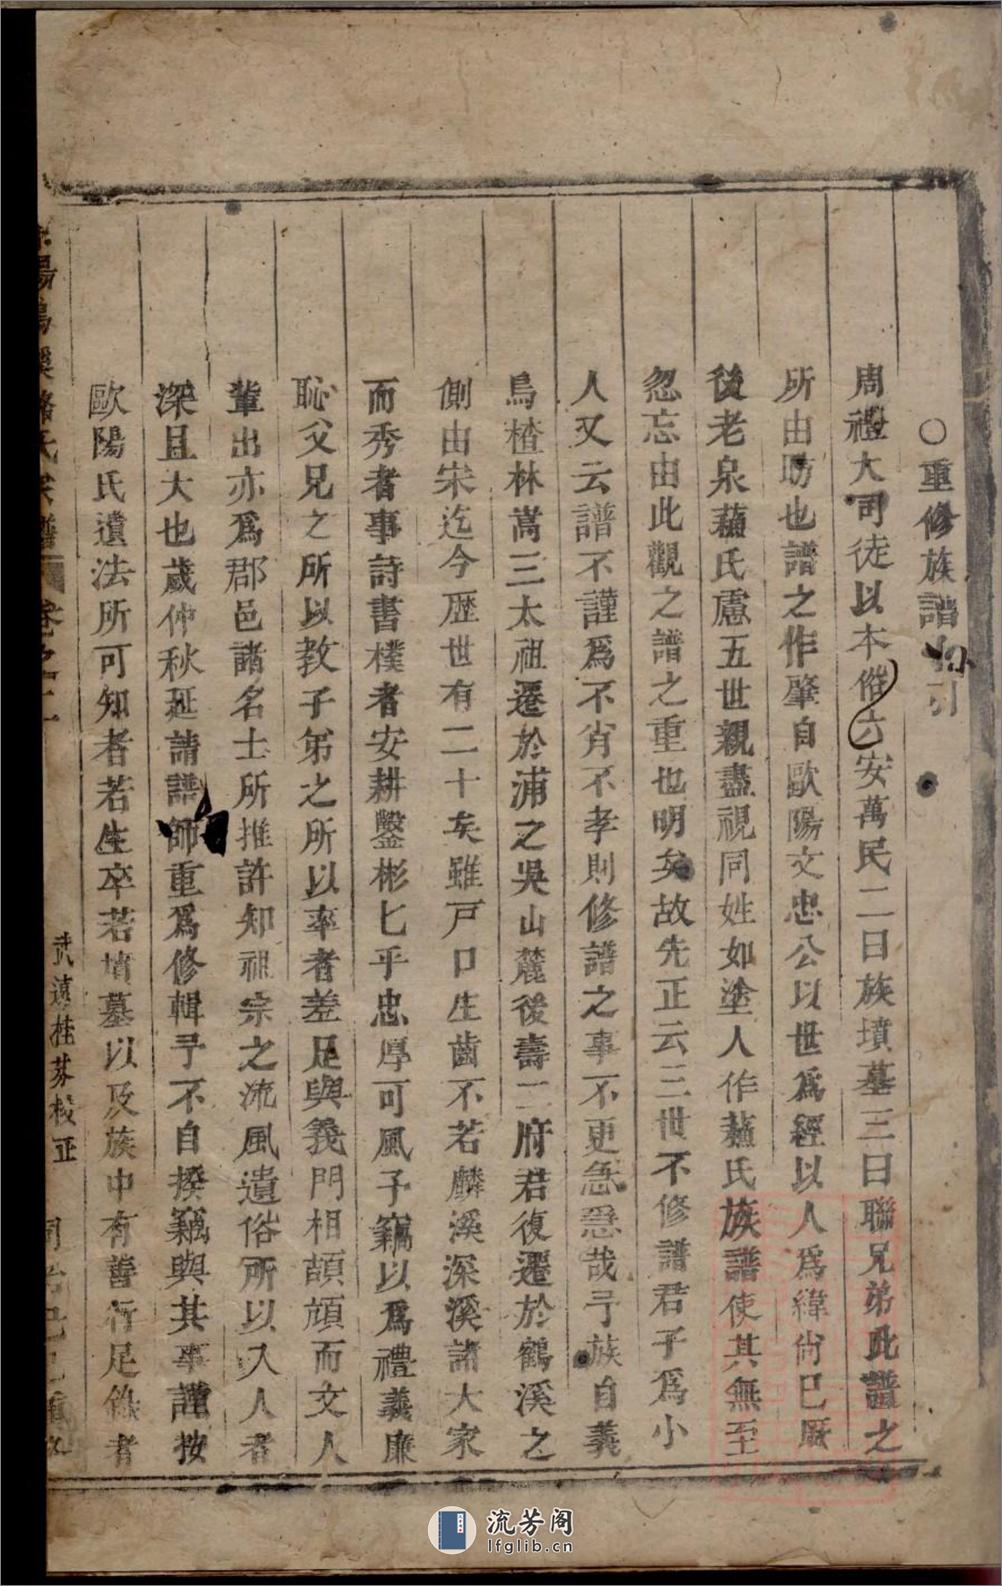 ○重修族譜小引
周禮大司徒以本俗六安萬民二曰族墳墓三曰聯兄弟此譜之
所由昉也譜之作肇自歐陽文忠公以世爲經以人爲緯尙已厥
後老泉蘓氏慮五世親盡視同姓如塗人作蘓氏族譜使其無至
忽忘由此觀之譜之重也明矣故先正云三世不修譜君子爲小
人又云譜不謹爲不肖不孝則修譜之事不更急爲哉予族自義
烏楂林嵩三太祖遷於浦之吳山麓後壽二府君復遷於鶴溪之
側由宋迄今歷世有二十矣雖戸口生齒不若麟溪深溪諸大家
而秀者事詩書樸者安耕鑿彬匕乎忠厚可風予竊以爲禮義廉
恥父兄之所以教子弟之所以率者差足與義門相頡頏而文人
輩出亦爲郡邑諸名士所推許知祖宗之流風遺俗所以入人者
深且大也歲仲秋延請譜師重爲修輯予不自揆竊與其事謹按
歐陽氏遺法所可知者若生卒若墳墓以及族中有善行足錄者
陽鳥溪駱氏宗譜 卷之一 武遠桂芬校正 同治己巳重修
流芳阁
lfglib.cn